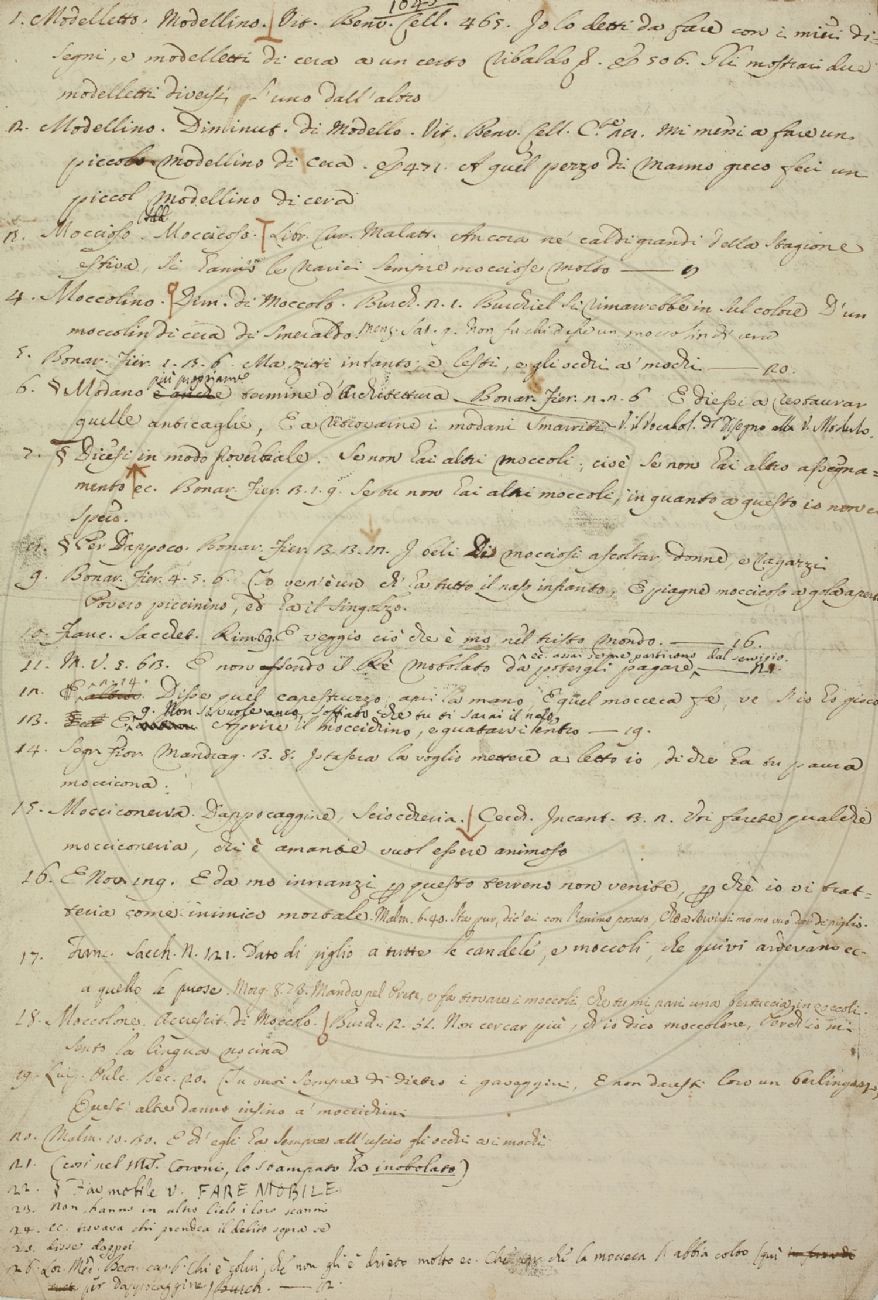 1042
1. Modelletto. Modellino. Vit. Benv. Cell. 465. Io lo detti da fare con i miei di=
segni, e modelletti di cera a un certo ribaldo E 506. Gli mostrai due
modelletti diversi l'uno dall'altro
2. Modellino. Diminut. di Modello. Vit. Benv. Cell. Mi messi a fare un
piccolo modellino di cera. E 471. A quel pezzo di Marmo greco feci un
piccol modellino di cera
3. Moccioso. Moccicoso. Libr. Cur. Malatt. Ancora ne' caldi grandi della stagione
estiva, si hanno le narici sempre mocciose molto
4. Moccolino. Dim. di Moccolo. Burch. 2. 1. Burchiel si rimarrebbe in sul colore D'un
moccolin di cera di smeraldo. Menz. Sat. 9. Non fu chi un moccolin di cera
5. Bonar. Fier. 1. 3. 6. Ma ziti intanto, e lesti, e gli occhi a' mochi 20.
6. § Modano più propriam. è anche termine d'Architettura Bonar. Fier. 2. 2. 6 E diessi a restaurar
quelle anticaglie, E a ritrovarne i modani smarriti V. il Vocabol. di Disegno alla V. Modulo.
7. § Dicesi in modo proverbiale. Se non hai altri moccoli; cioè Se non hai altro assegna=
mento ec. Bonar. Fier. 3. 1. 9. Se tu non hai altri moccoli, in quanto a questo io non ci
spero.
§ Per Dappoco. Bonar. Fier. 3. 3. I beli Di mocciosi ascoltar donne, e ragazzi
9. Bonar. Fier. 4. 5. 6. Io ven'è un ch'ha tutto il naso infranto, E piagne moccicoso a gola aperta
Povero piccinino, ed ha il singozzo.
10. Franc. Sacchet. Rim. 69. E veggio ciò che è mo nel tristo mondo. 16.
11. M. V. 5. 63. E non essendo il Rè mobolato da potergli pagare, ec. assai se ne partirono dal servigio.
12. E Disse quel capestruzzo, apri la mano, E quel mocceca fe, ve s'io ho gioco
13. E g. Non si vuole anco, soffiato che tu ti sarai il naso, Aprire il moccichino, e guatarvi entro 19.
14. Segr. Fior. Mandrag. 3. 8. Istasera la voglio mettere a letto io, di che ha tu paura
moccicona.
15. Mocciconeria. Dappocaggine, sciocchería. Cecch. Incant. 3. 2. Voi farete qualche
mocciconeria, chi è amante vuol essere animoso
16. E Nov. 129. E da mo innanzi per questo terreno non venite, per che io vi trat=
teria come inimico mortale. Malm. 6. 40. Sta pur, dic' ei con l'animo posato,
17. Franc. Sacch. N. 121. Dato di piglio a tutte le candele, e moccoli, che quivi ardevano ec.
a quelle le puose. Morg. 8. 73. Manda pel Prete, e fa trovare i moccoli, Che tu mi pari una bertuccia in zoccoli.
18. Moccolone. Accrescit. di Moccolo. Burch. 2. 51. Non cercar più, ch'io dico moccolone, Perch'io mi
sento la lingua nocina
19. Luig. Pulc. Bec. 20. Tu vuoi sempre di dietro i gaveggini, E non daresti loro un berlingozzo,
Quest'altre danno insino a' moccichini
20. Malm. 10. 30. E ch'egli ha sempre all'uscio gli occhi a i mochi
21. (così nel MS. Covoni, lo stampato ha inobolato)
22. § Far mobile v. FARE MOBILE.
23. non hanno in altro Cielo i loro scanni
24. ec. trovava chi prendea il debito sopra se
25. disse dappoi
26. Lor. Med. Beon. cap. 6 Chi è colui, che non gli è drieto molto ec. che la mocceca s'abbia colto (qui
per dappocaggine) Burch. 12.